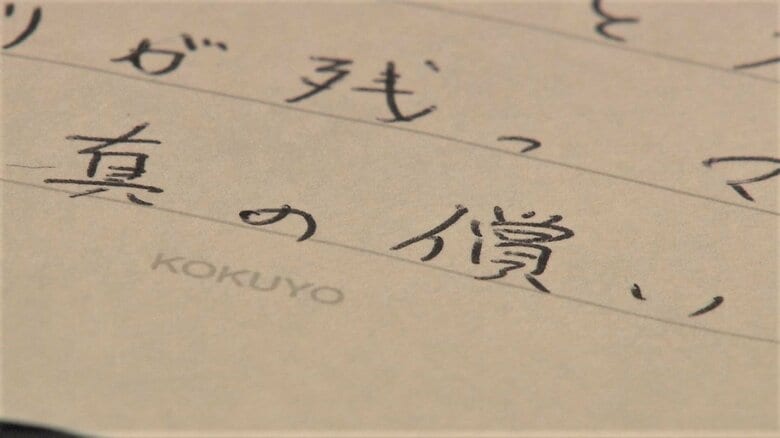 が残っ
真の償い
KOKUYO